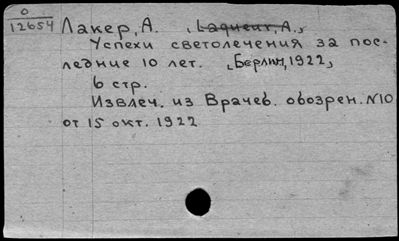 0
12654
Лакер, А. [Laqueur, A.]
Успехи светолечения за пос-
ледние 10 лет. [Берлин, 1922]
6 стр.
Извлеч. из Врачев. обозрен. №10
от 15 окт. 1922